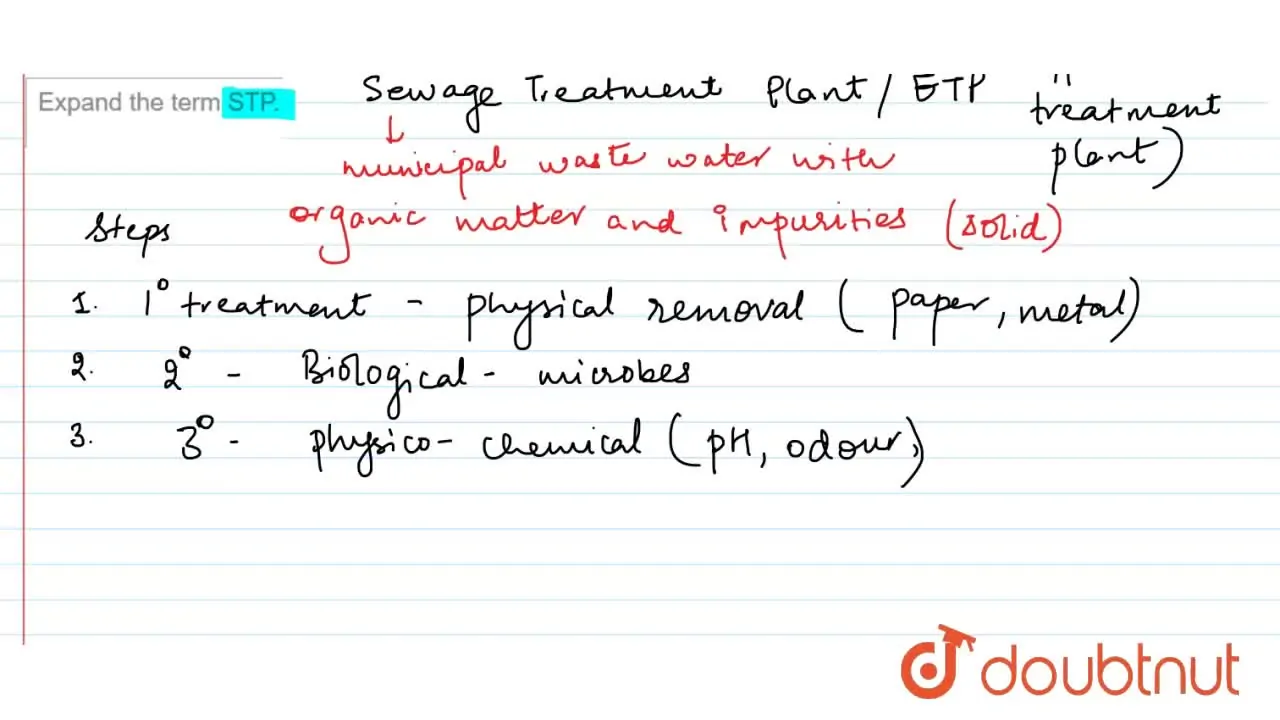 Expand the term STP.
Sewage Treatment Plant / ETP
treatment
plant)
↓
municipal waste water with
organic matter and impurities (solid)
Steps
1. 1° treatment - physical removal (paper, metal)
2. 2° - Biological - microbes
3. 3° - physico-chemical (pH, odour,)
doubtnut